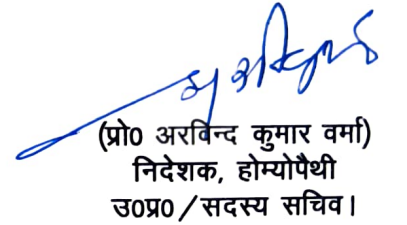 (प्रो0 अरविन्द कुमार वर्मा)
निदेशक, होम्योपैथी
उ0प्र0/सदस्य सचिव।